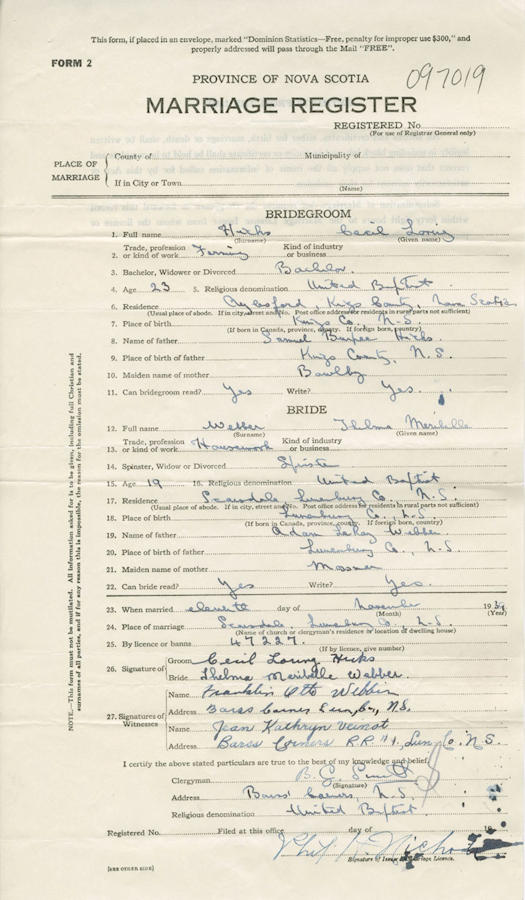 This form, if placed in an envelope, marked "Dominion Statistics—Free, penalty for improper use $300," and
properly addressed will pass through the Mail "FREE".
FORM 2
PROVINCE OF NOVA SCOTIA
097019
MARRIAGE REGISTER
REGISTERED No.
(For use of Registrar General only)
PLACE OF MARRIAGE
County of Municipality of
If in City or Town
(Name)
BRIDEGROOM
1. Full name Hicks Cecil Loring
(Surname) (Given name)
2. Trade, profession or kind of work Farming Kind of industry or business
3. Bachelor, Widower or Divorced Bachelor
4. Age 23 5. Religious denomination United Baptist
6. Residence Aylesford, Kings County, Nova Scotia
(Usual place of abode. If in city, street and No. Post office address for residents in rural parts not sufficient)
7. Place of birth Kings Co., N.S.
(If born in Canada, province, county. If foreign born, country)
8. Name of father Samuel Burpee Hicks
9. Place of birth of father Kings County, N.S.
10. Maiden name of mother Bowlby
11. Can bridegroom read? Yes Write? Yes.
BRIDE
12. Full name Webber Thelma Meribelle
(Surname) (Given name)
13. Trade, profession or kind of work Housework Kind of industry or business
14. Spinster, Widow or Divorced Spinster
15. Age 19 16. Religious denomination United Baptist
17. Residence Scarsdale, Lunenburg Co., N.S.
(Usual place of abode. If in city, street and No. Post office address for residents in rural parts not sufficient)
18. Place of birth Lunenburg Co., N.S.
(If born in Canada, province, county. If foreign born, country)
19. Name of father Adam Webber
20. Place of birth of father Lunenburg Co., N.S.
21. Maiden name of mother Mossman
22. Can bride read? Yes Write? Yes.
23. When married eleventh day of November 19
(Month) (Year)
24. Place of marriage Scarsdale, Lunenburg Co., N.S.
(Name of church or clergyman's residence or location of dwelling house)
25. By licence or banns 47227.
(If by licence, give number)
26. Signature of
Groom Cecil Loring Hicks
Bride Thelma Meribelle Webber
27. Signatures of Witnesses
Name Franklin Otto
Address Barss Corner Lun. Co., N.S.
Name Jean Kathryn Veinot
Address Barss Corners R.R. #1, Lun. Co. N.S.
I certify the above stated particulars are true to the best of my knowledge and belief,
Clergyman
(Signature)
Address Barss' Corners, N.S.
Religious denomination United Baptist
Registered No. Filed at this office day of 19
Signature of Issuer of Marriage Licence.
(SEE OTHER SIDE)
NOTE.—This form must not be mutilated. All information asked for is to be given, including full Christian and
surnames of all parties, and if for any reason this is impossible, the reason for the omission must be stated.